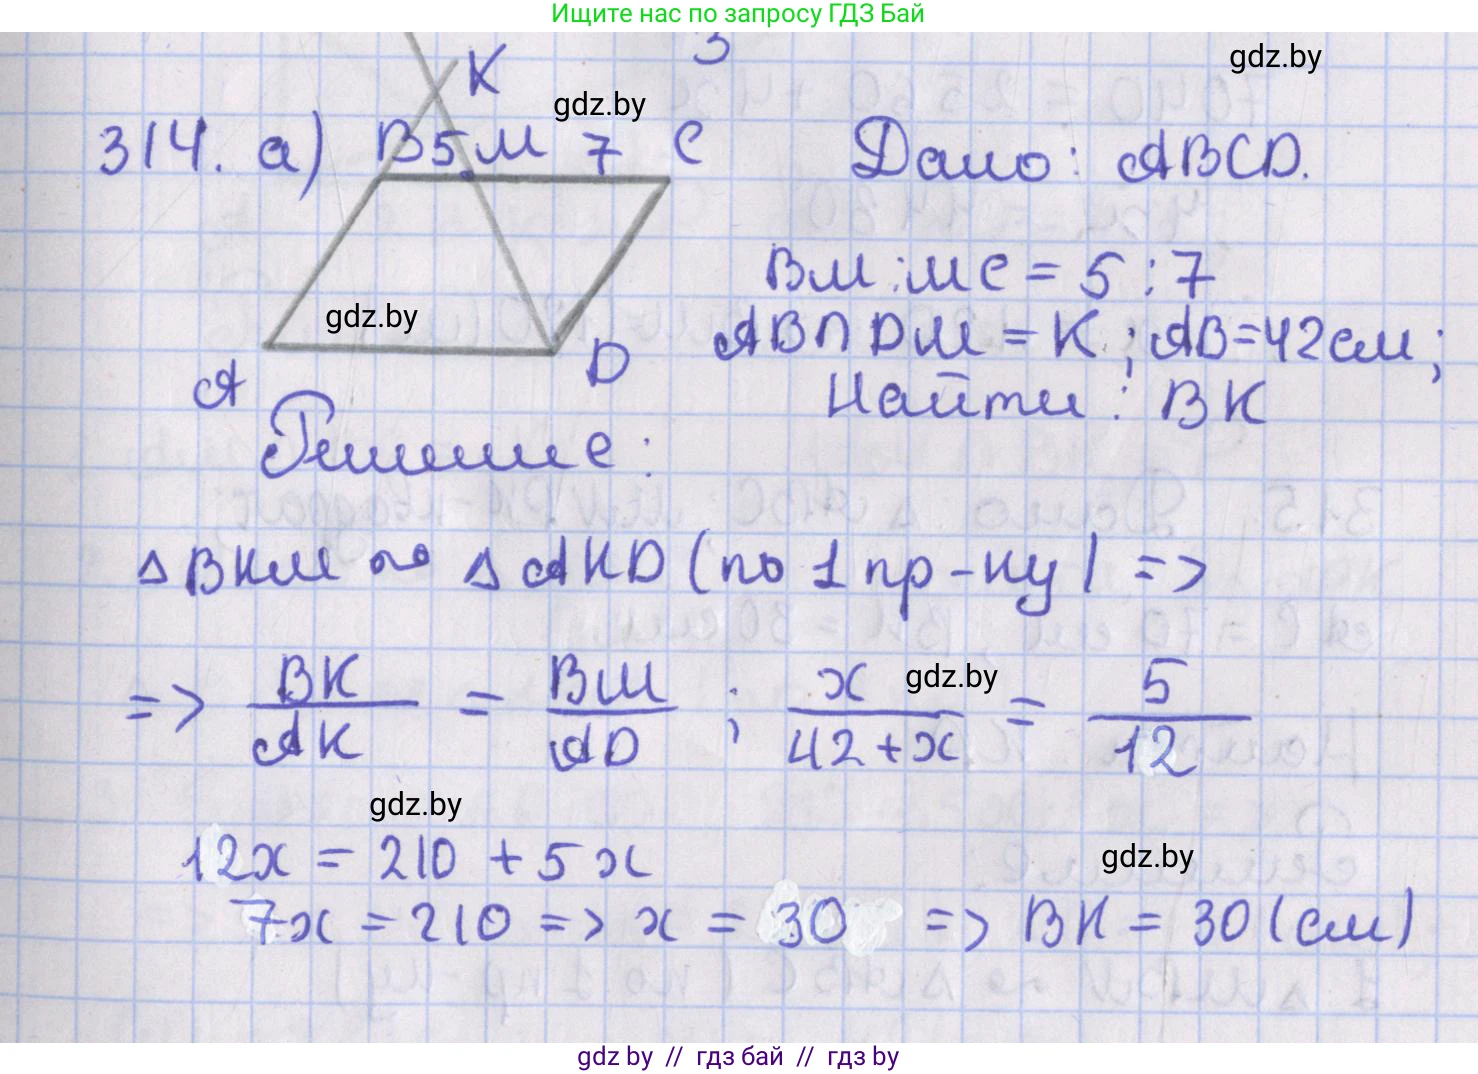 Ищите нас по запросу ГДЗ Бай
3
gdz.by
K
gdz.by
314. а) B 5 M 7 C
Дано: ABCD.
BM : MC = 5 : 7
gdz.by
AB ∩ DM = K ; AB = 42 см ;
A D
Найти : BK
Решение :
△ BKM ∾ △ AKD ( по 1 пр-ку ) =>
=> BK/AK = BM/AD ; x/(42+x) = 5/12
gdz.by
gdz.by
12x = 210 + 5x
gdz.by
7x = 210 => x = 30 => BK = 30 (см)
gdz.by // гдз бай // гдз by